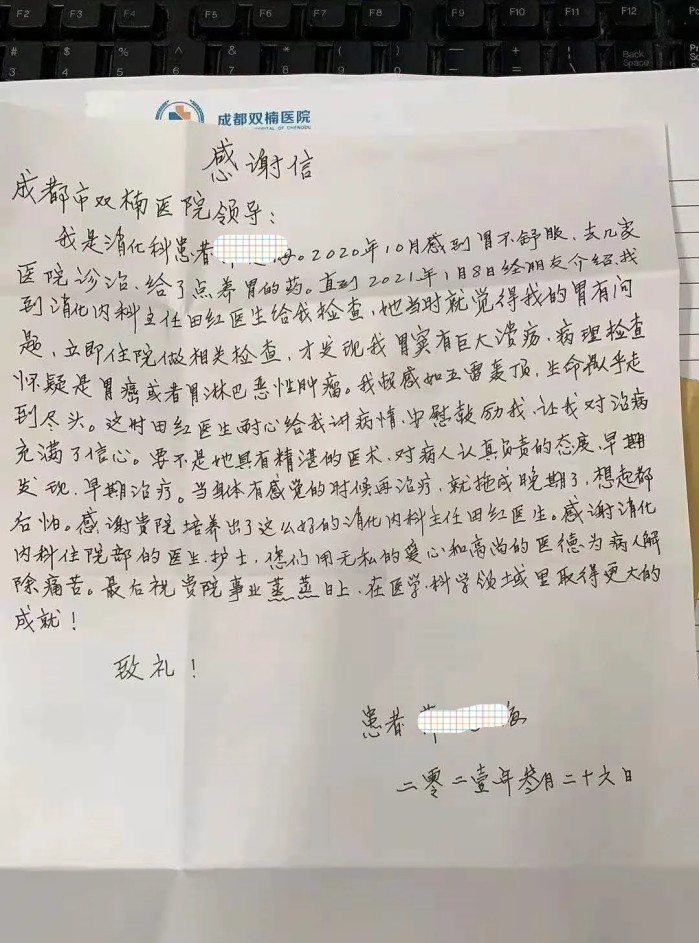 F2 F3 F4 F5 F6 F7 F8 F9 F10 F11 F12
# $ % ^ & * ( ) — + Back Space
3 4 5 6 7 8 9 0 - =
成都双楠医院
HOSPITAL OF CHENGDU
感谢信
成都市双楠医院领导：
我是消化科患者 。2020年10月感到胃不舒服，去几家
医院诊治，给了点养胃的药。直到2021年1月8日经朋友介绍我
到消化内科主任田红医生给我检查，她当时就觉得我的胃有问
题，立即住院做相关检查，才发现我胃窦有巨大溃疡，病理检查
怀疑是胃癌或者胃淋巴恶性肿瘤。我顿感如五雷轰顶，生命似乎走
到尽头。这时田红医生耐心给我讲病情，安慰鼓励我，让我对治病
充满了信心。要不是她具有精湛的医术，对病人认真负责的态度，早期
发现，早期治疗。当身体有感觉的时候再治疗，就拖成晚期了，想起都
后怕。感谢贵院培养出了这么好的消化内科主任田红医生。感谢消化
内科住院部的医生、护士，您们用无私的爱心和高尚的医德为病人解
除痛苦。最后祝贵院事业蒸蒸日上，在医学科学领域里取得更大的
成就！
致礼！
患者
二零二壹年叁月二十六日